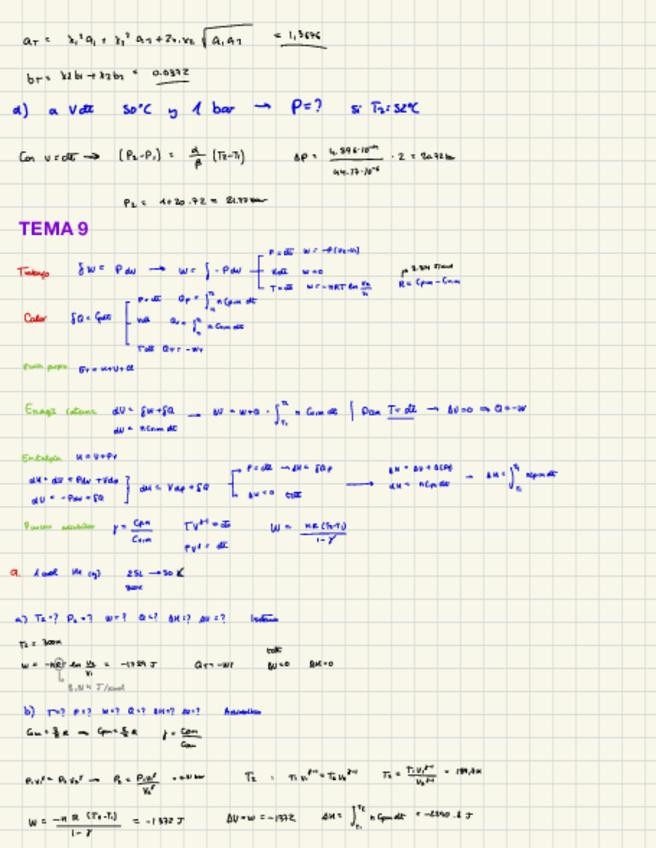 a_T = x₁² a₁ + x₂² a₂ + 2x₁x₂ √a₁a₂ = 1,3676
b_T = x₁b₁ + x₂b₂ = 0.0372
d) a V cte 50°C y 1 bar → P=? si T₂=52°C
Con v=cte → (P₂-P₁) = α/β (T₂-T₁) ΔP = · 2 = 20.72 bar
P₂ = 1+20.72 = 21.72 bar
TEMA 9
Trabajo δW = P dv → W = ∫ -P dv
P=cte W=-P(V₂-V₁)
V cte W=0
T=cte W=-nRT ln V₂/V₁
R = Cpm - Cvm
Calor
P=cte Qp = ∫ n Cpm dt
V cte Qv = ∫ n Cvm dt
T cte Q = -W
Energía interna dU = δW+δQ → ΔU = W+Q = ∫ n Cvm dt | Para T=cte → ΔU=0 ⇒ Q=-W
dU = n Cvm dt
Entalpía H=U+PV
dH = dU + Pdv + Vdp
dU = -Pdv + δQ
dH = Vdp + δQ
P=cte → dH = δQp
ΔH=0 T cte
ΔH = ΔU + Δ(PV)
dH = n Cpm dt → ΔH = ∫ n Cpm dt
Proceso adiabático γ = Cpm/Cvm TV^γ-1 = cte W = nR(T₂-T₁)/1-γ
PV^γ = cte
9. 1 mol He (g) 25L → 50 L
300K
a) T₂=? P₂=? W=? Q=? ΔH=? ΔU=? Isotermo
T₂ = 300K
W = -nRT ln V₂/V₁ = -1729 J Q = -W T cte ΔU=0 ΔH=0
8.314 J/Kmol
b) T=? P=? W=? Q=? ΔH=? ΔU=? Adiabático
Cvm = 3/2 R → Cpm = 5/2 R γ = Cpm/Cvm
P₁V₁^γ = P₂V₂^γ → P₂ = P₁V₁^γ/V₂^γ T₂: T₁V₁^γ-1 = T₂V₂^γ-1 T₂ = T₁V₁^γ-1/V₂^γ-1
W = -nR(T₂-T₁)/1-γ = -1372 J ΔU=W=-1372 ΔH = ∫ n Cpm dt